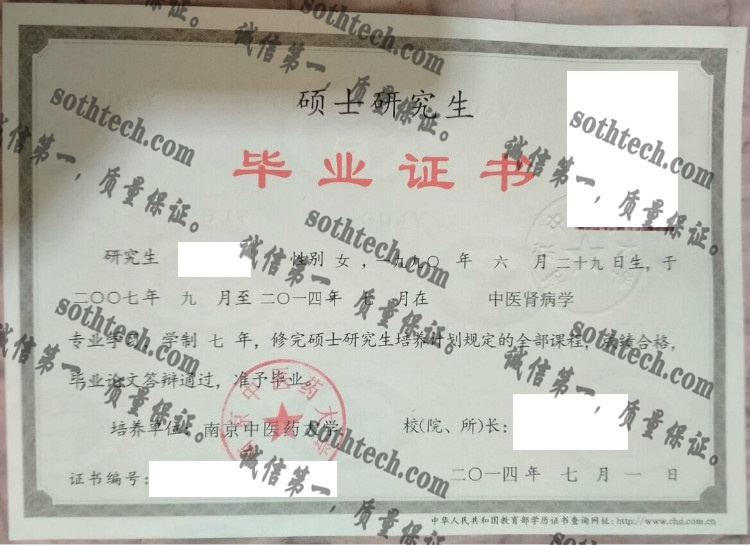 硕士研究生
毕业证书
研究生 性别 女 ，一九九〇 年 六 月 二十九 日生，于
二〇〇七年 九 月至 二〇一四年 七 月在 中医肾病学
专业学习，学制 七 年，修完硕士研究生培养计划规定的全部课程，成绩合格，
毕业论文答辩通过，准予毕业。
培养单位：南京中医药大学 校(院、所)长：
南京中医药大学
证书编号： 二〇一四年 七 月 一 日
中华人民共和国教育部学历证书查询网址：http://www.chsi.com.cn
sothtech.com
诚信第一，质量保证。
sothtech.com
诚信第一，质量保证。
sothtech.com
诚信第一，质量保证。
sothtech.com
诚信第一，质量保证。
sothtech.com
诚信第一，质量保证。
sothtech.com
诚信第一，质量保证。
sothtech.com
诚信第一，质量保证。
sothtech.com